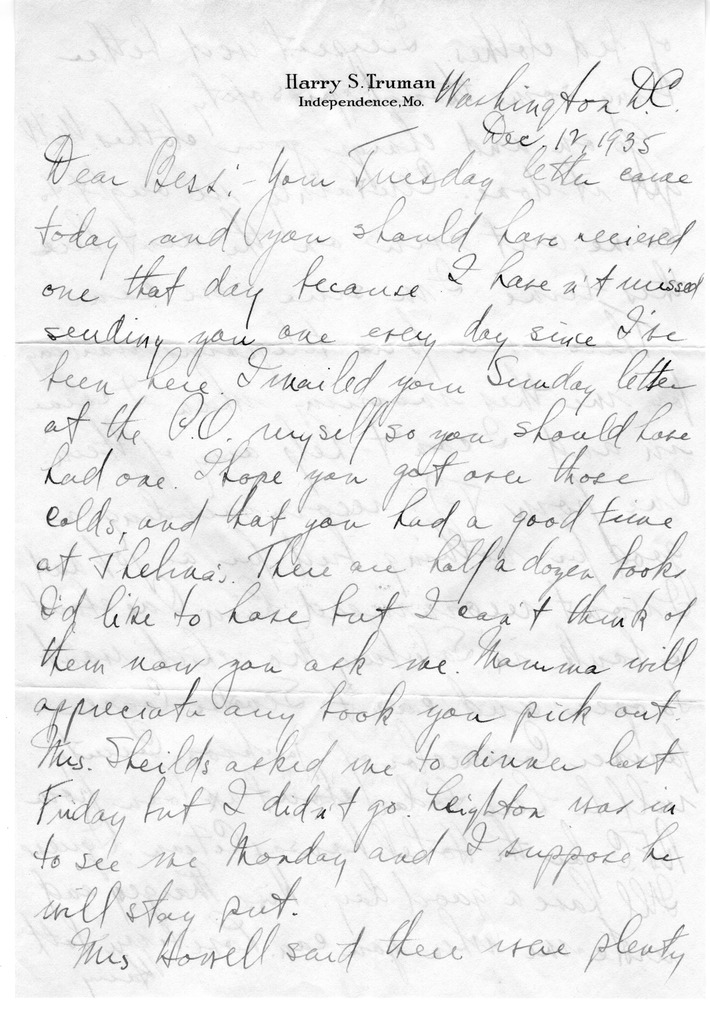 Harry S. Truman
Independence, Mo.
Washington D.C.
Dec. 12, 1935
Dear Bess:- Your Tuesday letter came
today and you should have recieved
one that day because I haven't missed
sending you one every day since I've
been here. I mailed your Sunday letter
at the P.O. myself so you should have
had one. I hope you got over those
colds, and that you had a good time
at Thelma's. There are half a dozen books
I'd like to have but I can't think of
them now you ask me. Mamma will
appreciate any book you pick out.
Mrs. Sheilds asked me to dinner last
Friday but I didn't go. Leighton was in
to see me Monday and I suppose he
will stay put.
Mrs Howell said there were plenty